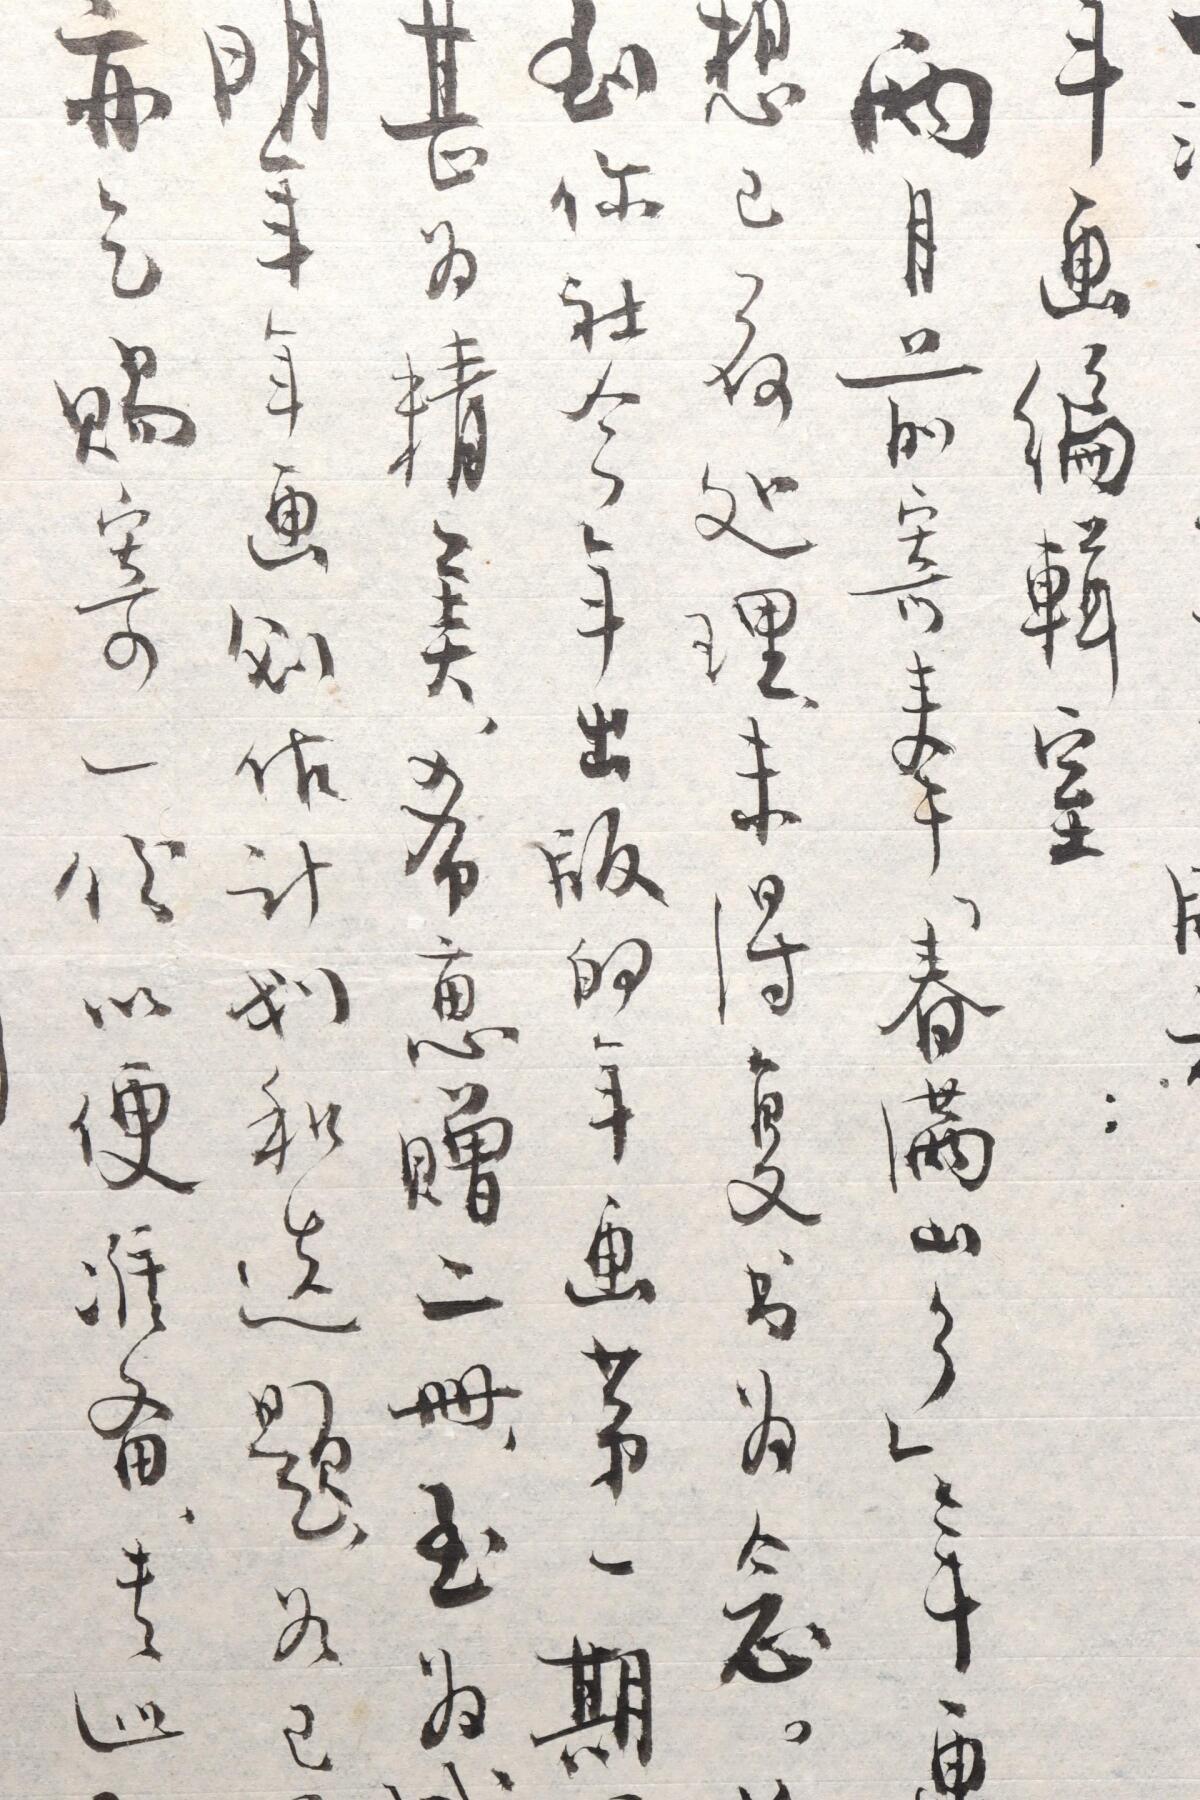 年画编辑室：
两月前寄奉「春满山乡」年画
想已荷处理，未得复书为念。
到你社今年出版的年画第一期
甚为精美，希惠赠二册，至为
明年年画创估计划和选题，如已
亦乞赐寄一份以便准备。专此